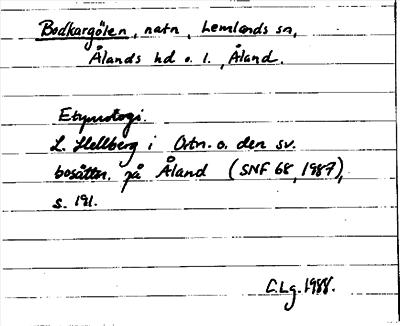 Bodkargölen, natn, Lemlands sn,
Ålands hd o. l., Åland.
Etymologi.
L. Hellberg i Ortn. o. den sv.
bosättn. på Åland (SNF 68, 1987),
s. 191.
C.Lg. 1988.